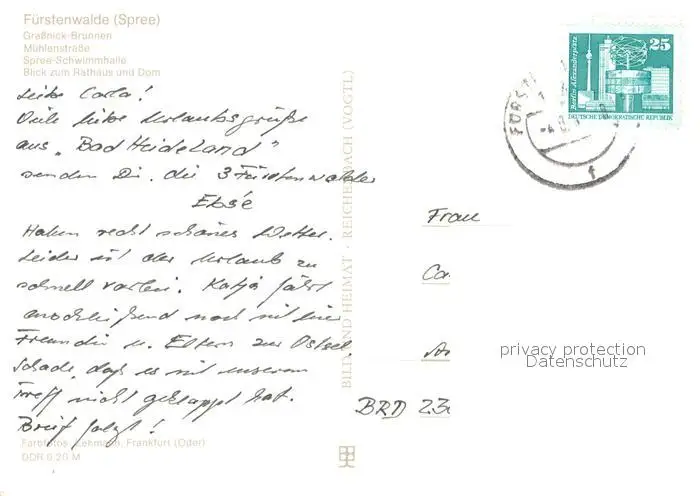 Fürstenwalde (Spree)
Graßnick-Brunnen
Mühlenstraße
Spree-Schwimmhalle
Blick zum Rathaus und Dom
Liebe Carla!
Viele liebe Urlaubsgrüße
aus „Bad Heideland"
senden Dir die 3 Fürstenwalder
Haben recht schönes Wetter.
Leider ist der Urlaub zu
schnell vorbei. Katja fährt
anschließend noch mit ihrer
Freundin u. Eltern zur Ostsee.
Schade, daß es mit unserem
Treff nicht geklappt hat.
Brief folgt!
Farbfotos: Lehmann, Frankfurt (Oder)
DDR 0,20 M
BILD UND HEIMAT · REICHENBACH (VOGTL)
25
Berlin-Alexanderplatz
DEUTSCHE DEMOKRATISCHE REPUBLIK
FÜRST
f
Frau
Ca
BRD 23
privacy protection
Datenschutz